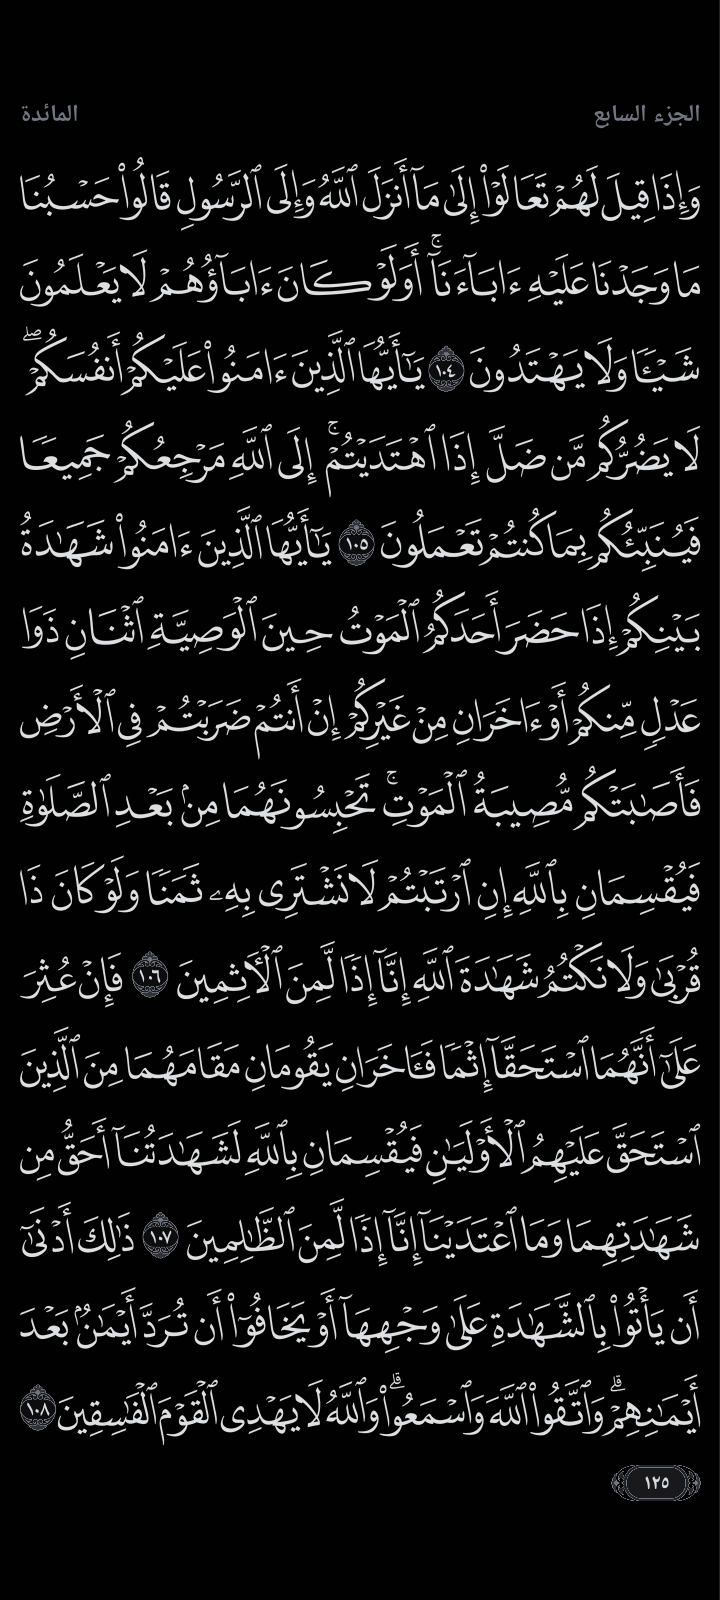 الجزء السابع
المائدة
وَإِذَا قِيلَ لَهُمۡ تَعَالَوۡاْ إِلَىٰ مَآ أَنزَلَ ٱللَّهُ وَإِلَى ٱلرَّسُولِ قَالُواْ حَسۡبُنَا
مَا وَجَدۡنَا عَلَيۡهِ ءَابَآءَنَآۚ أَوَلَوۡ كَانَ ءَابَآؤُهُمۡ لَا يَعۡلَمُونَ
شَيۡـٔٗا وَلَا يَهۡتَدُونَ ١٠٤ يَـٰٓأَيُّهَا ٱلَّذِينَ ءَامَنُواْ عَلَيۡكُمۡ أَنفُسَكُمۡۖ
لَا يَضُرُّكُم مَّن ضَلَّ إِذَا ٱهۡتَدَيۡتُمۡۚ إِلَى ٱللَّهِ مَرۡجِعُكُمۡ جَمِيعٗا
فَيُنَبِّئُكُم بِمَا كُنتُمۡ تَعۡمَلُونَ ١٠٥ يَـٰٓأَيُّهَا ٱلَّذِينَ ءَامَنُواْ شَهَٰدَةُ
بَيۡنِكُمۡ إِذَا حَضَرَ أَحَدَكُمُ ٱلۡمَوۡتُ حِينَ ٱلۡوَصِيَّةِ ٱثۡنَانِ ذَوَا
عَدۡلٖ مِّنكُمۡ أَوۡ ءَاخَرَانِ مِنۡ غَيۡرِكُمۡ إِنۡ أَنتُمۡ ضَرَبۡتُمۡ فِي ٱلۡأَرۡضِ
فَأَصَٰبَتۡكُم مُّصِيبَةُ ٱلۡمَوۡتِۚ تَحۡبِسُونَهُمَا مِنۢ بَعۡدِ ٱلصَّلَوٰةِ
فَيُقۡسِمَانِ بِٱللَّهِ إِنِ ٱرۡتَبۡتُمۡ لَا نَشۡتَرِي بِهِۦ ثَمَنٗا وَلَوۡ كَانَ ذَا
قُرۡبَىٰ وَلَا نَكۡتُمُ شَهَٰدَةَ ٱللَّهِ إِنَّآ إِذٗا لَّمِنَ ٱلۡأٓثِمِينَ ١٠٦ فَإِنۡ عُثِرَ
عَلَىٰٓ أَنَّهُمَا ٱسۡتَحَقَّآ إِثۡمٗا فَـَٔاخَرَانِ يَقُومَانِ مَقَامَهُمَا مِنَ ٱلَّذِينَ
ٱسۡتَحَقَّ عَلَيۡهِمُ ٱلۡأَوۡلَيَٰنِ فَيُقۡسِمَانِ بِٱللَّهِ لَشَهَٰدَتُنَآ أَحَقُّ مِن
شَهَٰدَتِهِمَا وَمَا ٱعۡتَدَيۡنَآ إِنَّآ إِذٗا لَّمِنَ ٱلظَّٰلِمِينَ ١٠٧ ذَٰلِكَ أَدۡنَىٰٓ
أَن يَأۡتُواْ بِٱلشَّهَٰدَةِ عَلَىٰ وَجۡهِهَآ أَوۡ يَخَافُوٓاْ أَن تُرَدَّ أَيۡمَٰنُۢ بَعۡدَ
أَيۡمَٰنِهِمۡۗ وَٱتَّقُواْ ٱللَّهَ وَٱسۡمَعُواْۗ وَٱللَّهُ لَا يَهۡدِي ٱلۡقَوۡمَ ٱلۡفَٰسِقِينَ ١٠٨
١٢٥